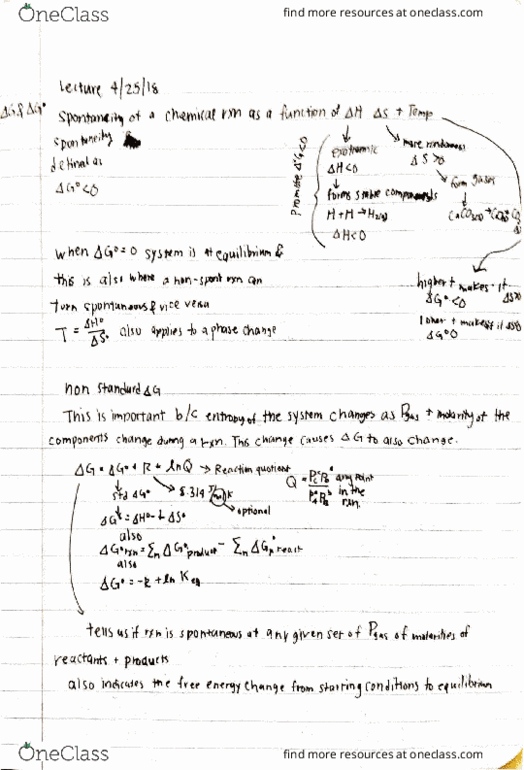 OneClass
find more resources at oneclass.com
Lecture 4/25/18
ΔG & ΔG°
Spontaneity of a chemical rxn as a function of ΔH ΔS + Temp
spontaneity
defined as
ΔG°<0
promote ΔG<0
exothermic
ΔH<0
forms stable components
H + H → H2(g)
ΔH<0
more randomness
ΔS>0
form gases
when ΔG°=0 system is at equilibrium &
this is also where a non-spont rxn can
turn spontaneous & vice versa
T = ΔH°/ΔS° also applies to a phase change
higher t makes it
ΔG°<0
ΔS>0
lower t makes it
ΔG°0
non standard ΔG
This is important b/c entropy of the system changes as Pgas + molarity of the
components change during a rxn. This change causes ΔG to also change.
ΔG = ΔG° + R t lnQ → Reaction quotient
Q = any point
in the
rxn.
std ΔG°
8.314 J/mol K
optional
ΔG° = ΔH° - t ΔS°
also
ΔG°rxn = Σn ΔG°product - Σn ΔG°react
also
ΔG° = -R t ln Keq
tells us if rxn is spontaneous at any given set of Pgas of molarities of
reactants + products
also indicates the free energy change from starting conditions to equilibrium
OneClass
find more resources at oneclass.com